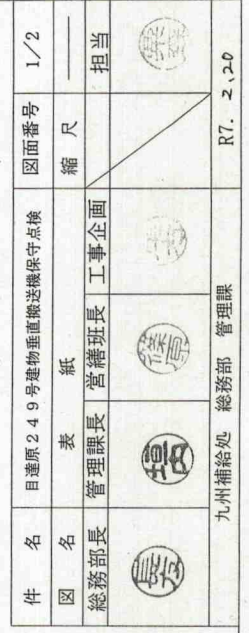 件 名 目達原249号建物垂直搬送機保守点検 図面番号 1/2
図 名 表 紙 縮 尺 ——
総務部長 管理課長 営繕班長 工事企画 担当
九州補給処 総務部 管理課 R7. 2.20